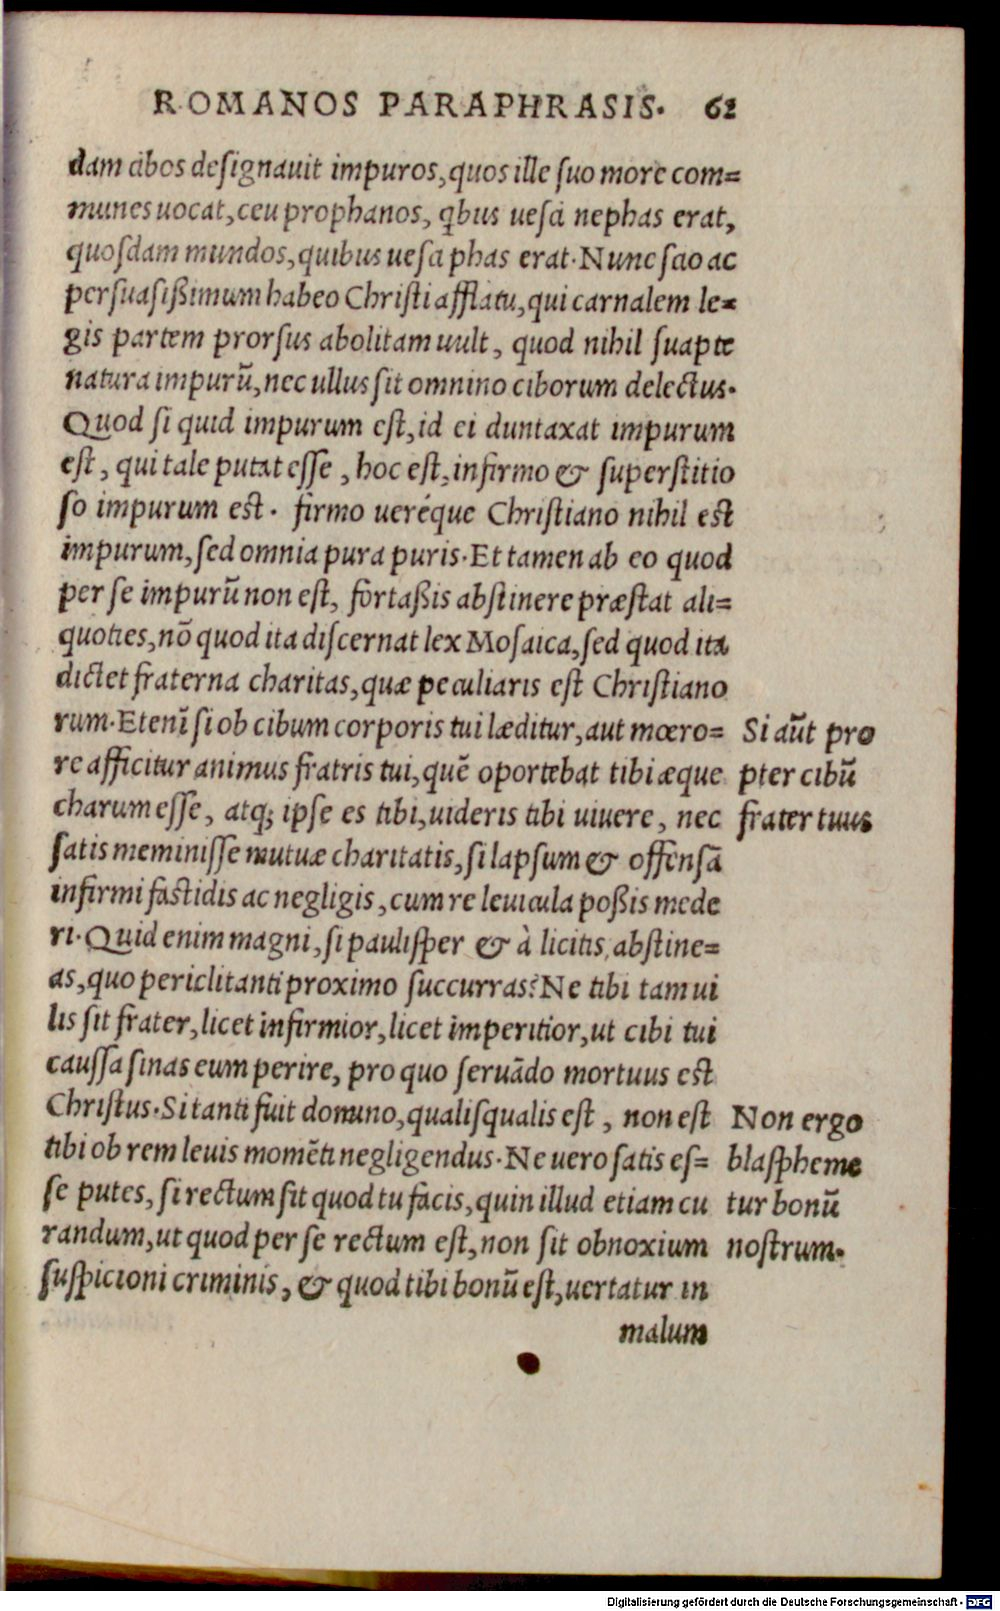 ROMANOS PARAPHRASIS. 62
dam cibos deſignauit impuros, quos ille ſuo more com=
munes uocat, ceu prophanos, qbus ueſci nephas erat,
quoſdam mundos, quibus ueſci phas erat. Nunc ſcio ac
perſuaſißimum habeo Chriſti afflatu, qui carnalem le=
gis partem prorſus abolitam uult, quod nihil ſuapte
natura impurū, nec ullus ſit omnino ciborum delectus.
Quod ſi quid impurum eſt, id ei duntaxat impurum
eſt, qui tale putat eſſe, hoc eſt, infirmo & ſuperſtitio
ſo impurum eſt. firmo ueréque Chriſtiano nihil eſt
impurum, ſed omnia pura puris. Et tamen ab eo quod
per ſe impurū non eſt, fortaßis abſtinere præſtat ali=
quoties, nō quod ita diſcernat lex Moſaica, ſed quod ita
dictet fraterna charitas, quæ peculiaris eſt Chriſtiano
rum. Etenī ſi ob cibum corporis tui læditur, aut mœro=
re afficitur animus fratris tui, quē oportebat tibi æque
charum eſſe, atq; ipſe es tibi, uideris tibi uiuere, nec
ſatis meminiſſe mutuæ charitatis, ſi lapſum & offenſā
infirmi faſtidis ac negligis, cum re leuicula poßis mede
ri. Quid enim magni, ſi pauliſper & à licitis, abſtine=
as, quo periclitanti proximo ſuccurras? Ne tibi tam ui
lis ſit frater, licet infirmior, licet imperitior, ut cibi tui
cauſſa ſinas eum perire, pro quo ſeruādo mortuus eſt
Chriſtus. Si tanti fuit domino, qualiſqualis eſt, non eſt
tibi ob rem leuis momēti negligendus. Ne uero ſatis eſ=
ſe putes, ſi rectum ſit quod tu facis, quin illud etiam cu
randum, ut quod per ſe rectum eſt, non ſit obnoxium
ſuſpicioni criminis, & quod tibi bonū eſt, uertatur in
malum
Si aūt pro
pter cibū
frater tuus
Non ergo
blaſpheme
tur bonū
noſtrum.
Digitalisierung gefördert durch die Deutsche Forschungsgemeinschaft - DFG